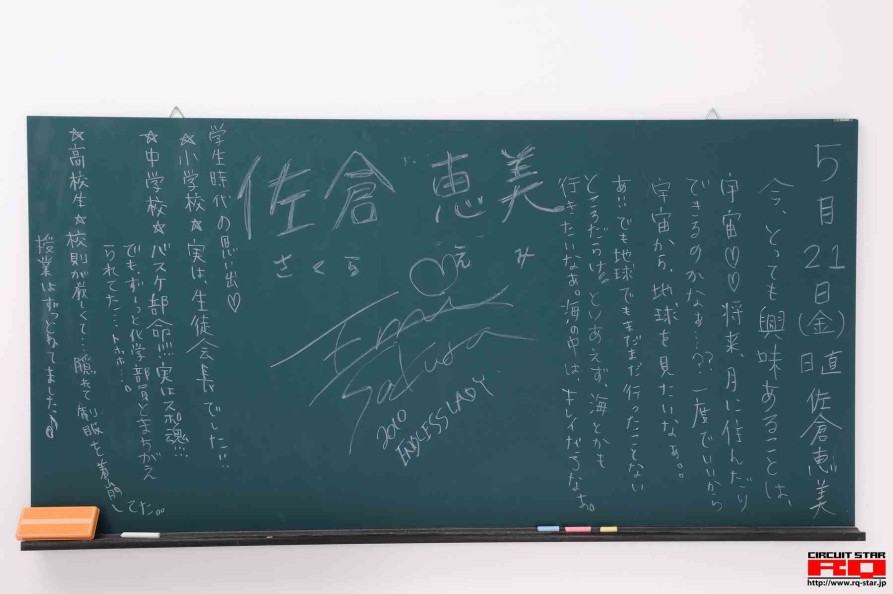 5月21日(金)日直 佐倉恵美
今、とっても興味あることは、
宇宙♡♡将来、月に住んだり
できるのかなぁ…??一度でいいから
宇宙から、地球を見たいなぁ。
あ、でも地球でもまだまだ行ったことない
ところだらけ!!とりあえず、海とかも
行きたいなぁ。海の中は、キレイだろうなぁ。
佐倉 恵美
さくら えみ
Emi
Sakura
2010
ENDLESS LADY
学生時代の思い出♡
☆小学校☆実は、生徒会長でした!!
☆中学校☆バスケ部命!!!実はスポ魂!!!
でも、ずーっと化学部員とまちがえ
られてた…トホホ…。
☆高校生☆校則が厳しくて…隠れて制服を着崩してた。
授業はずっとねてました♪
CIRCUIT STAR
RQ
http://www.rq-star.jp